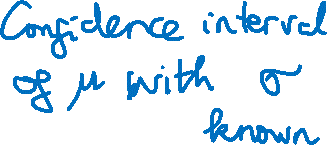 Confidence interval
of μ with σ
known